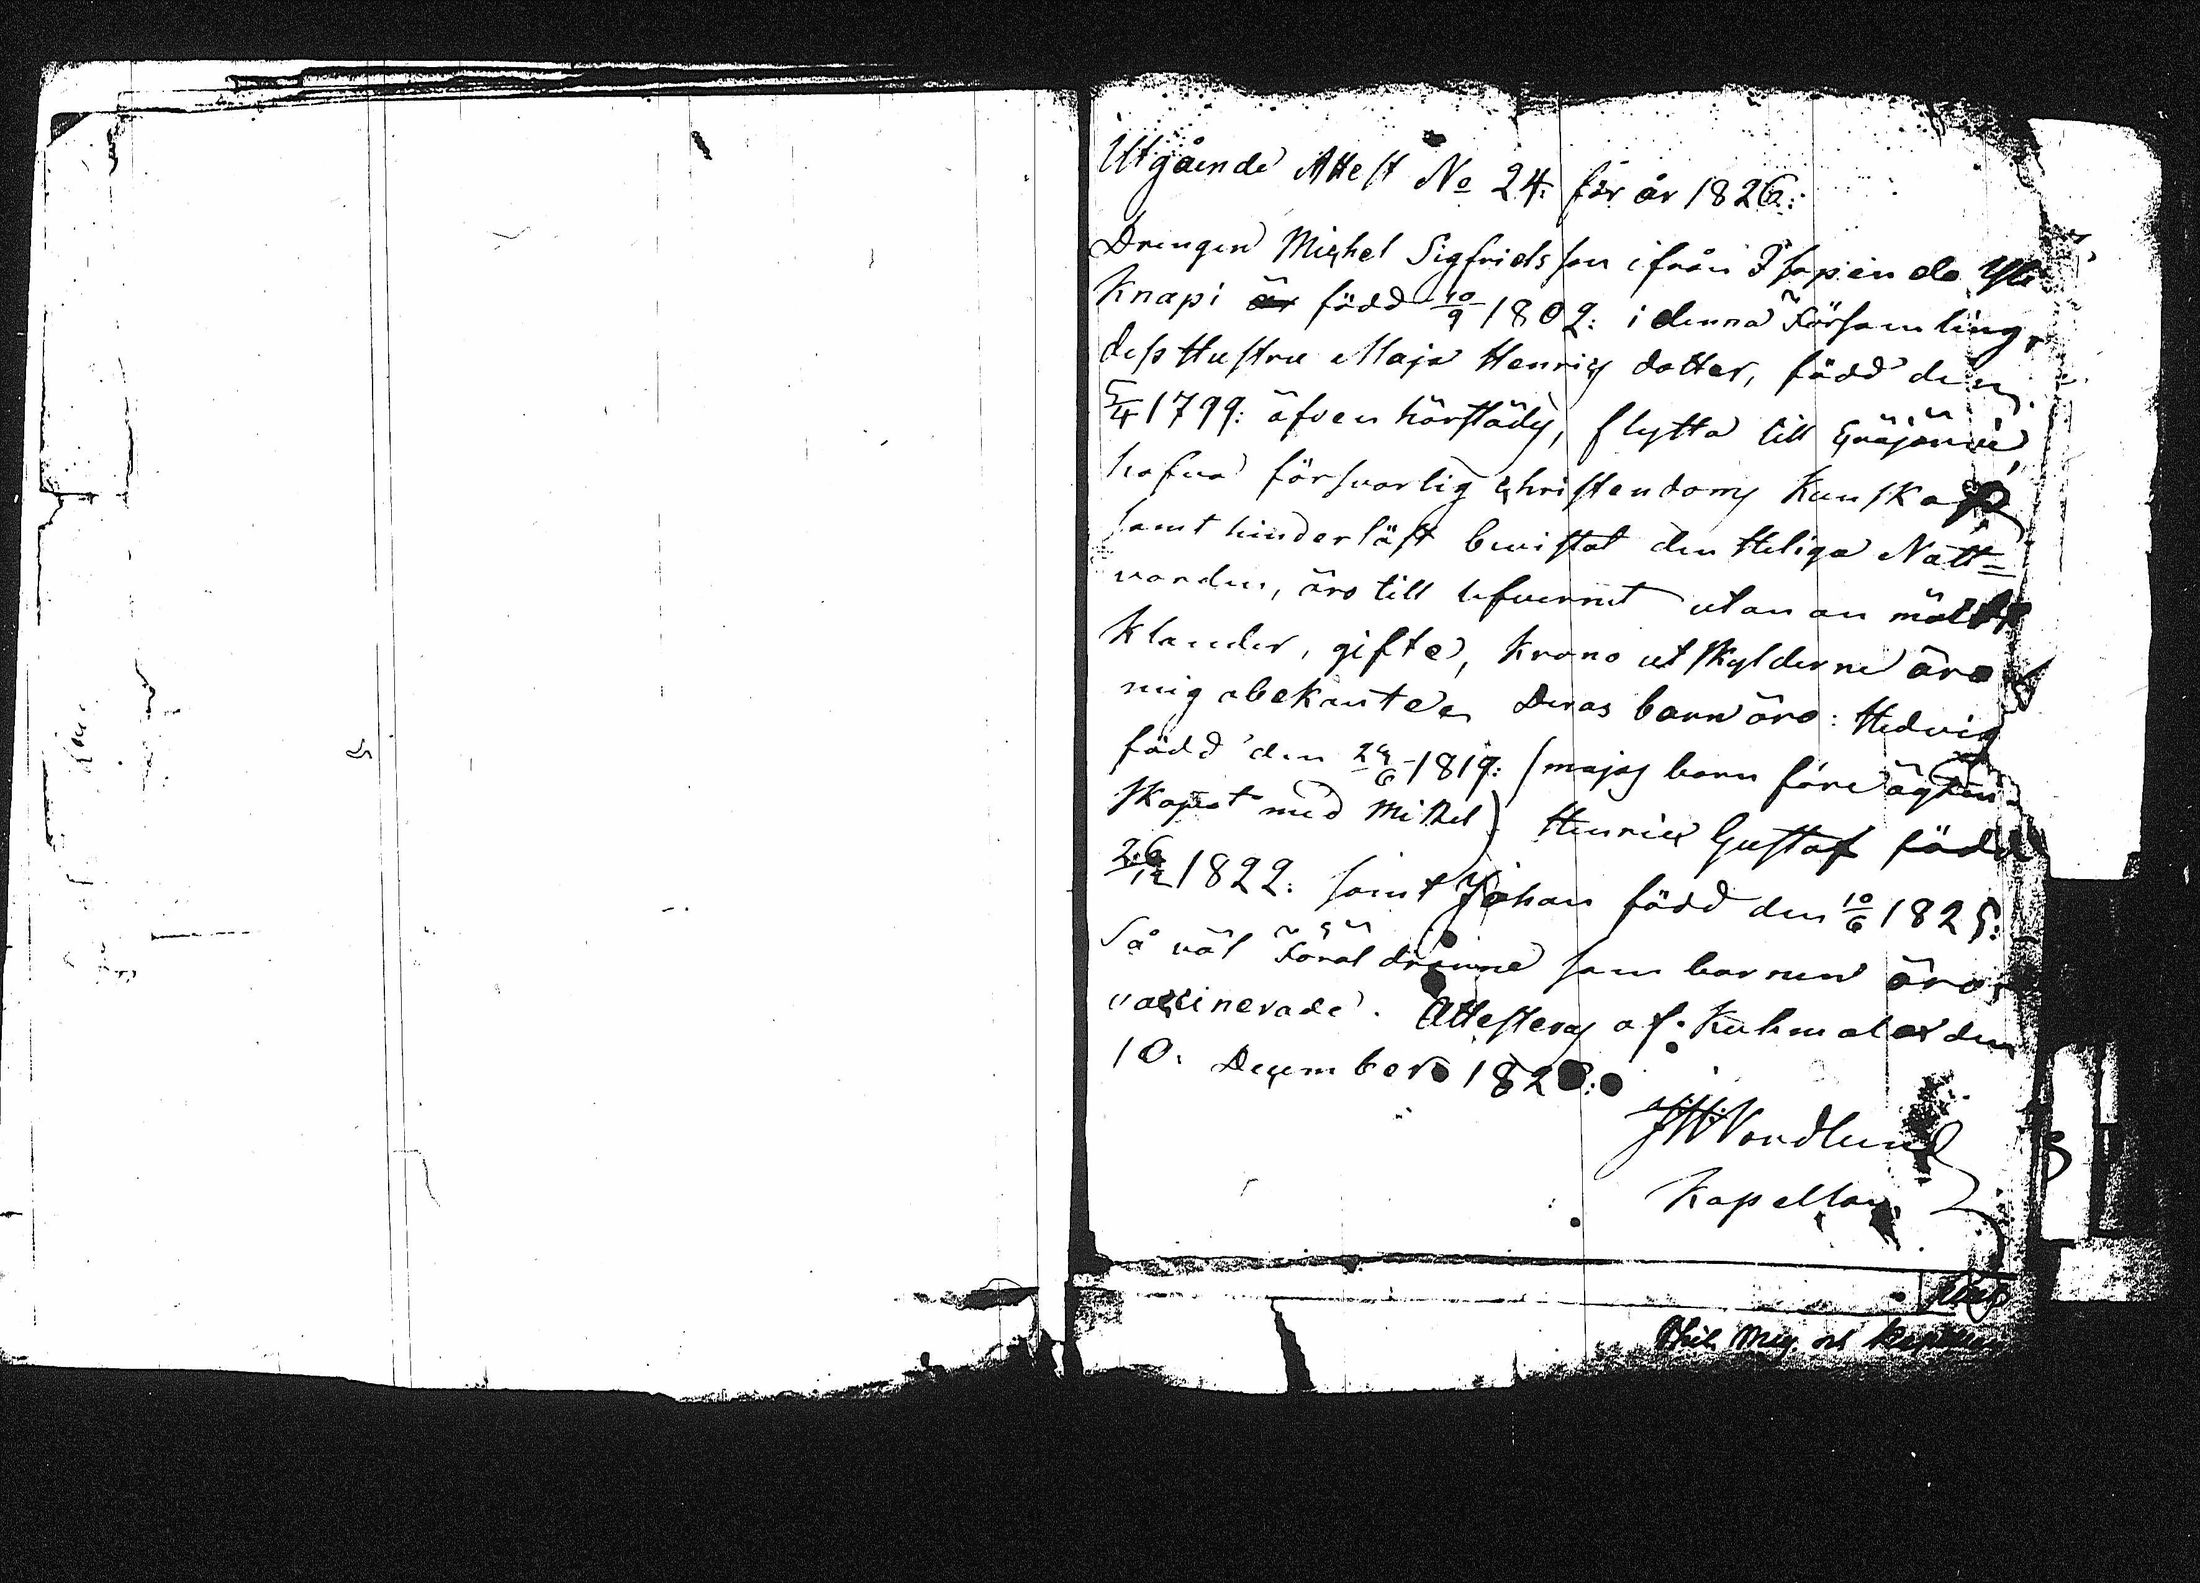 Utgående Attest No 24. för år 1826:
Drengen Michel Sigfridsson ifrån Isopendo Yli
Knapi är född 10/9 1802: i denna Församling,
dess Hustru Maja Henrics dotter, född den
5/4 1799: äfven härstädes, flytta till
hafva försvarlig Christendoms Kunskap
samt hinderlöst bevistat den Heliga Natt=
varden, äro till lefvernet utan anmält
Klander, gifte, Krono utskylderne äro
mig obekante. Deras barn äro: Hedvig
född den 29/6 1819: (Majas barn före ägten-
skapet med Mickel) Henric Gustaf född
26/12 1822: samt Johan född den 10/6 1825:
Så väl Föräldrarne som barnen äro
vaccinerade. Attesteras af Kuhmalax den
10. December 182
Nordlund
Kapellan.